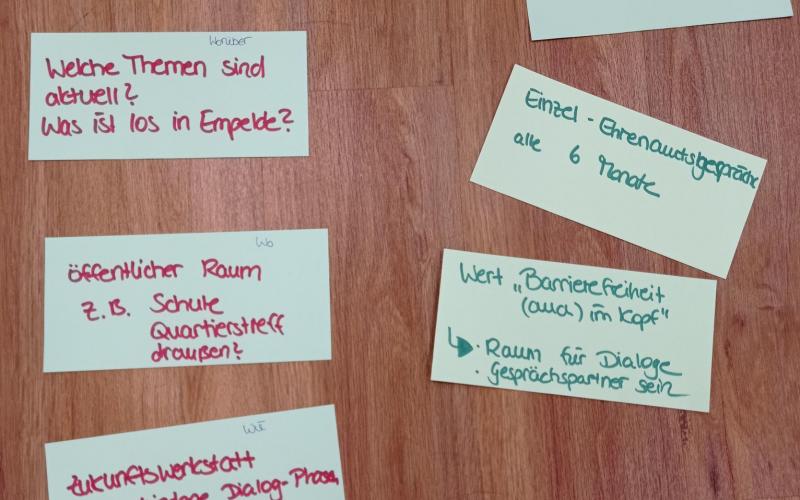 Worüber
Welche Themen sind
aktuell?
Was ist los in Empelde?
Wo
öffentlicher Raum
z.B. Schule
Quartierstreff
draußen?
Wie
Zukunftswerkstatt
Dialog-Phasen
Einzel - Ehrenamtsgespräche
alle 6 Monate
Wert „Barrierefreiheit
(auch) im Kopf"
↳ · Raum für Dialoge
· Gesprächspartner sein